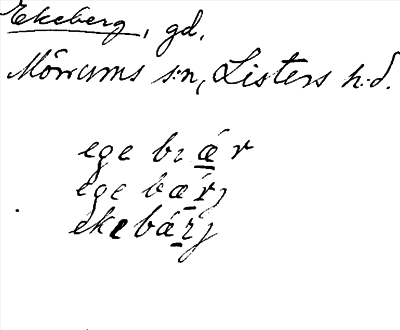 Ekeberg, gd,
Mörrums s:n, Listers h:d.
ege bıǽr
ege bǽrj
ekebárj